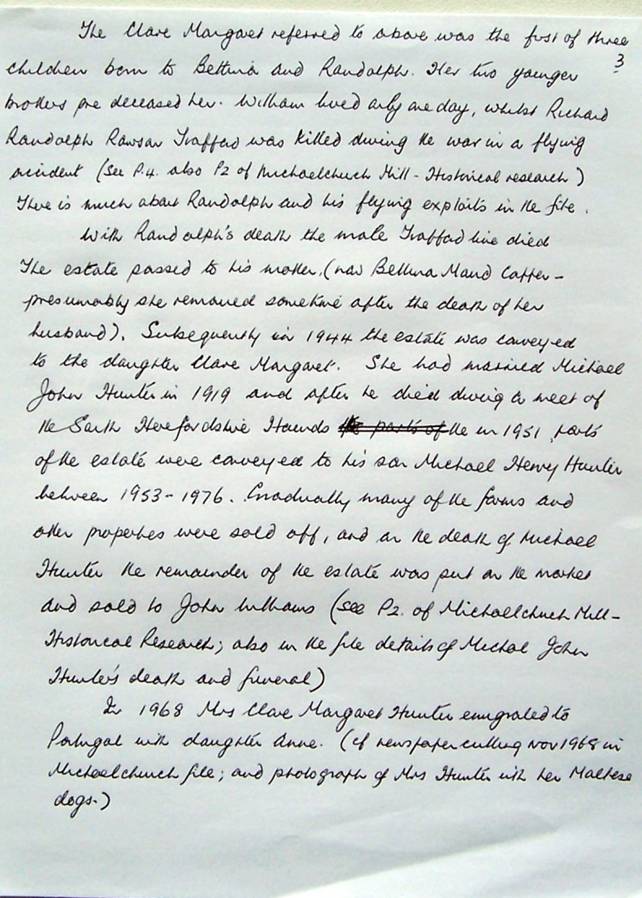 The Clare Margaret referred to above was the first of three
3
children born to Bettina and Randolph. Her two younger
brothers pre deceased her. William lived only one day, whilst Richard
Randolph Rawson Trafford was killed during the war in a flying
accident (see P.4. also P2 of Michaelchurch Mill - Historical research)
There is much about Randolph and his flying exploits in the file.
With Randolph's death the male Trafford line died
The estate passed to his mother, (now Bettina Maud Capper -
presumably she remarried sometime after the death of her
husband). Subsequently in 1944 the estate was conveyed
to the daughter Clare Margaret. She had married Michael
John Hunter in 1919 and after he died during a meet of
the South Herefordshire Hounds in 1951, parts
of the estate were conveyed to his son Michael Henry Hunter
between 1953-1976. Gradually many of the farms and
other properties were sold off, and on the death of Michael
Hunter the remainder of the estate was put on the market
and sold to John Williams (see P2. of Michaelchurch Mill -
Historical Research; also in the file details of Michael John
Hunter's death and funeral)
In 1968 Mrs Clare Margaret Hunter emigrated to
Portugal with daughter Anne. (cf newspaper cutting Nov 1968 in
Michaelchurch file; and photograph of Mrs Hunter with her Maltese
dogs.)